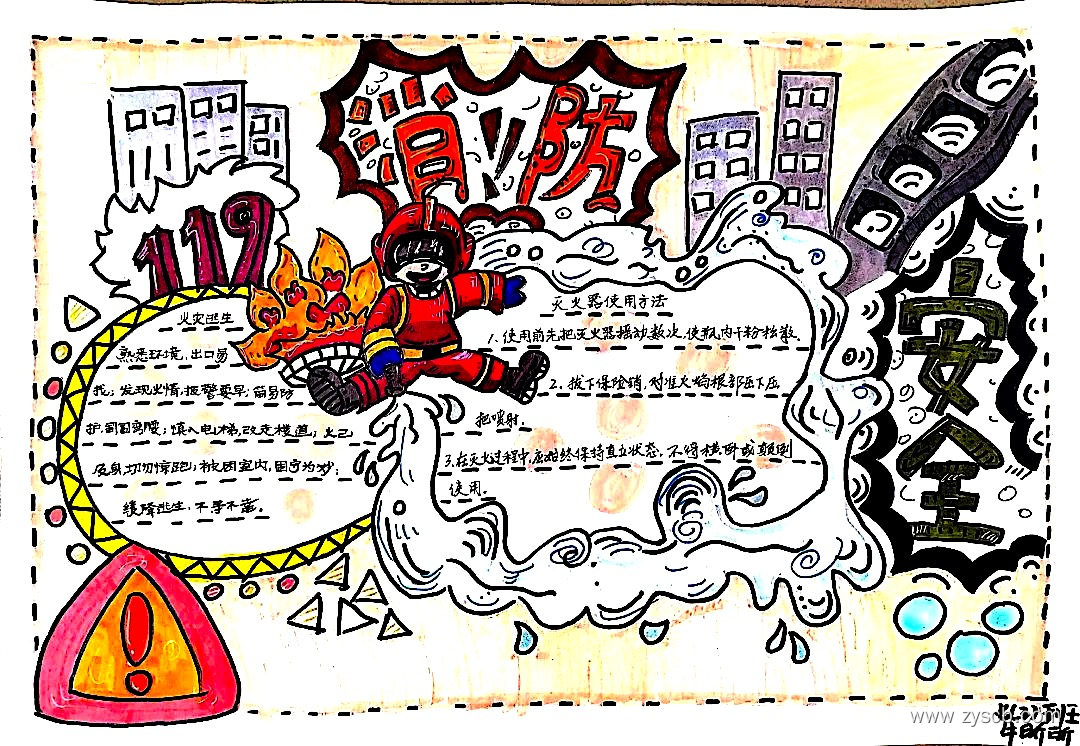 消防
119
安全
火灾逃生
熟悉环境,出口易
找;发现火情,报警要早;简易防
护,匍匐弯腰;慎入电梯,改走楼道;火已
及身,切勿惊跑;被困室内,固守为妙;
缓降逃生,不等不靠。
灭火器使用方法
1.使用前先把灭火器摇动数次,使瓶内干粉松散。
2.拔下保险销,对准火焰根部压下压
把喷射.
3.在灭火过程中,应始终保持直立状态,不得横卧或颠倒
使用。
www.zyscb.com